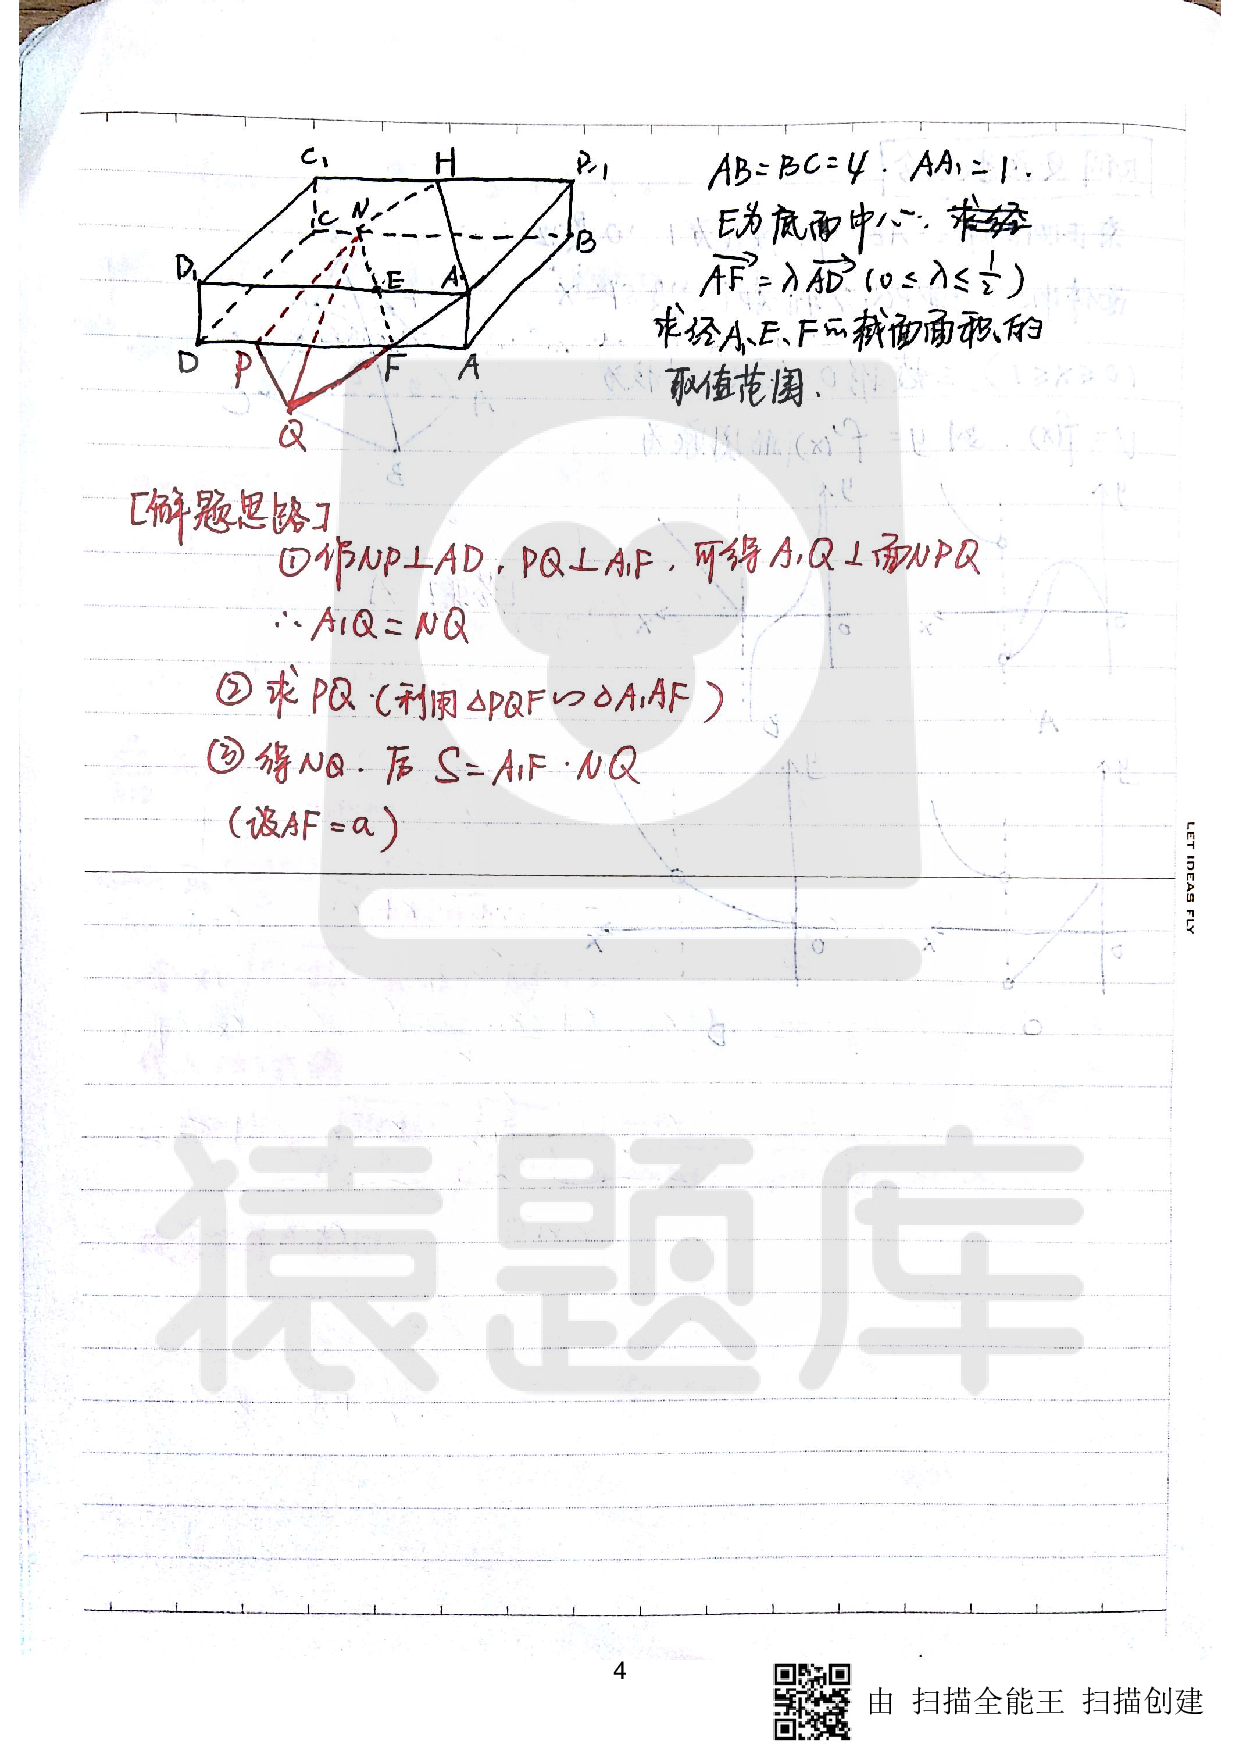 C₁ H B₁
C N B
D₁ E A₁
D P F A
Q
AB=BC=4. AA₁=1.
E为底面中心.
AF=λAD (0≤λ≤1/2)
求经A₁、E、F的截面面积的
取值范围.
[解题思路]
①作NP⊥AD, PQ⊥A₁F, 可得A₁Q⊥面NPQ
∴A₁Q=NQ
②求PQ.(利用△PQF∽△A₁AF)
③得NQ. 后 S=A₁F·NQ
(设AF=a)
LET IDEAS FLY
猿题库
4
由 扫描全能王 扫描创建